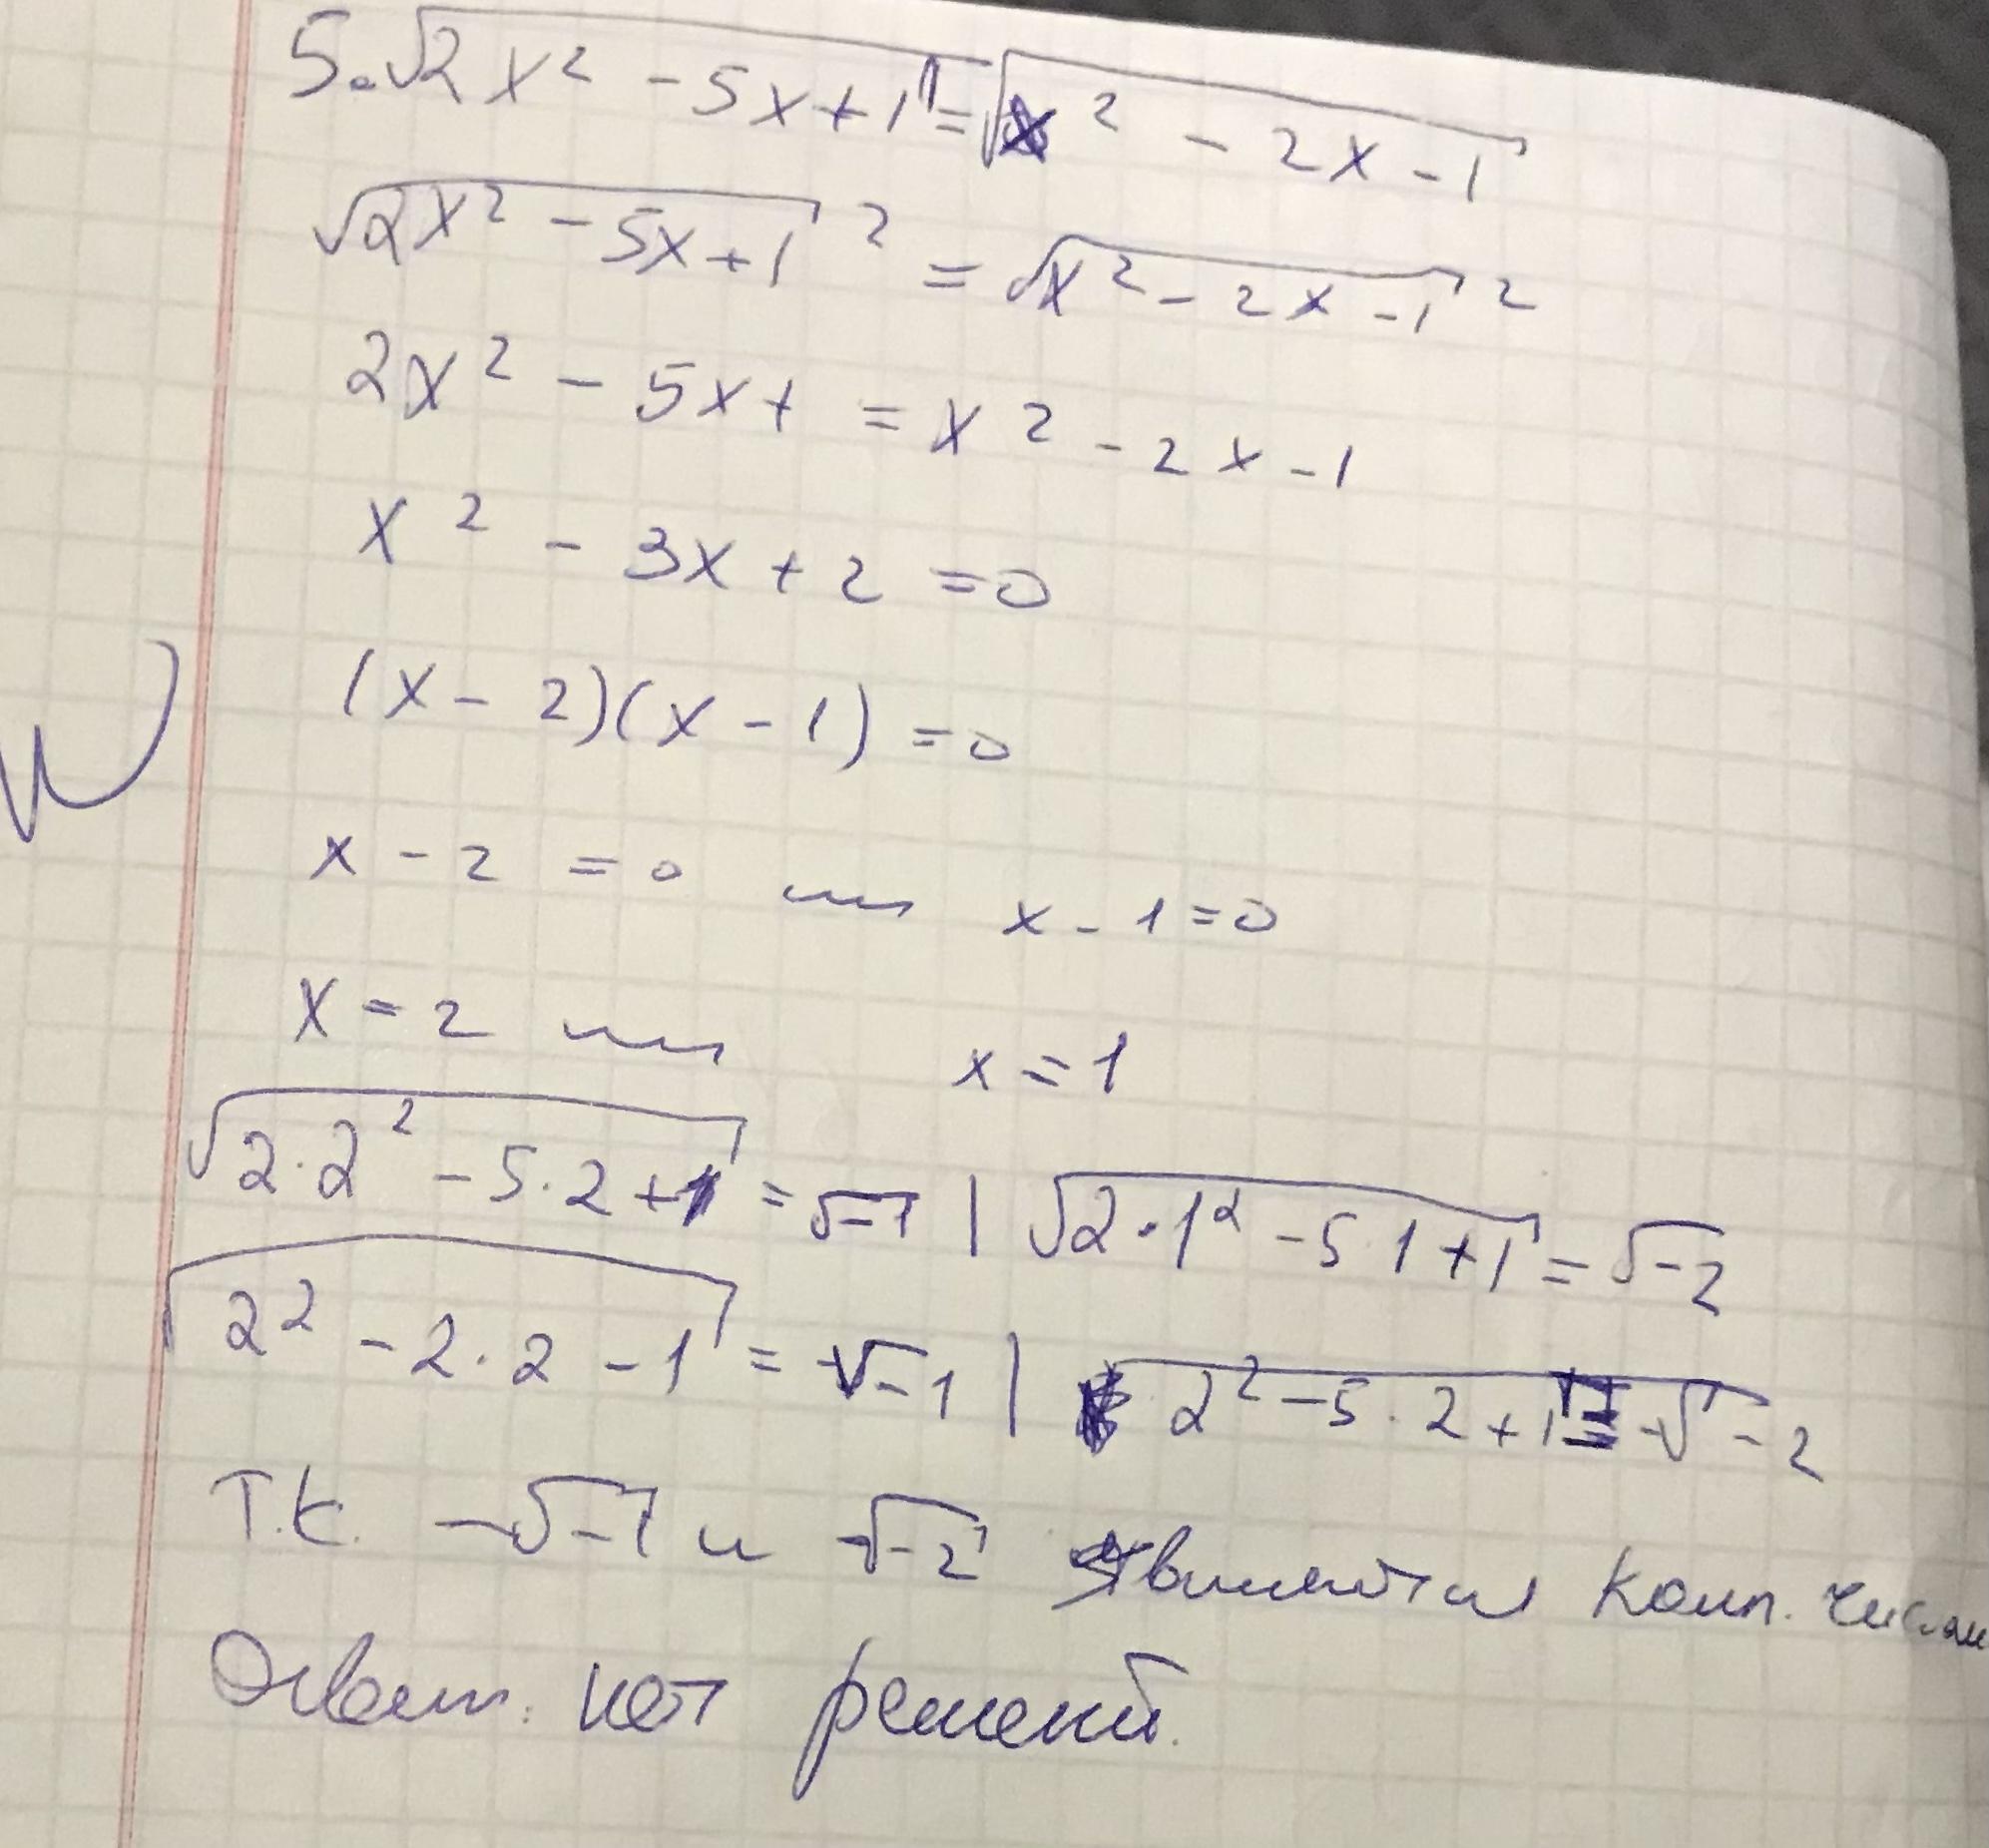 5. √2x² - 5x + 1 = √x² - 2x - 1
√2x² - 5x + 1² = √x² - 2x - 1²
2x² - 5x + = x² - 2x - 1
x² - 3x + 2 = 0
(x - 2)(x - 1) = 0
x - 2 = 0 или x - 1 = 0
x = 2 или x = 1
√2·2² - 5·2 + 1 = √-1 | √2·1² - 5·1 + 1 = √-2
√2² - 2·2 - 1 = √-1 | 2² - 5·2 + 1 = √-2
Т.к. √-1 и √-2 являются комп. числам
Ответ: нет решений.